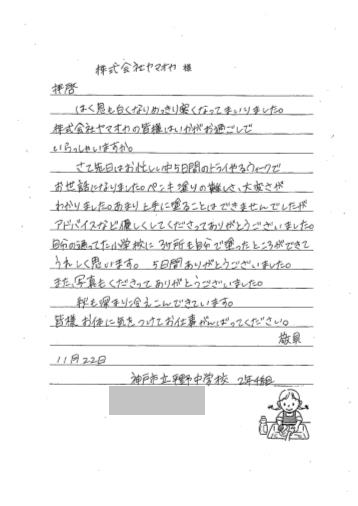 株式会社ヤマオカ 様
拝啓
はく息も白くなりめっきり寒くなってまいりました。
株式会社ヤマオカの皆様はいかがお過ごしで
いらっしゃいますか。
さて先日はお忙しい中5日間のトライやるウィークで
お世話になりました。ペンキ塗りの難しさ、大変さが
わかりました。あまり上手に塗ることはできませんでしたが
アドバイスなど優しくしてくださってありがとうございました。
自分の通ってた小学校に3ヶ所も自分で塗ったところができて
うれしく思います。 5日間ありがとうございました。
また、写真もくださってありがとうございました。
秋も深まり冷えこんできています。
皆様お体に気をつけてお仕事がんばってください。
敬具
11月22日
神戸市立平野中学校 2年4組